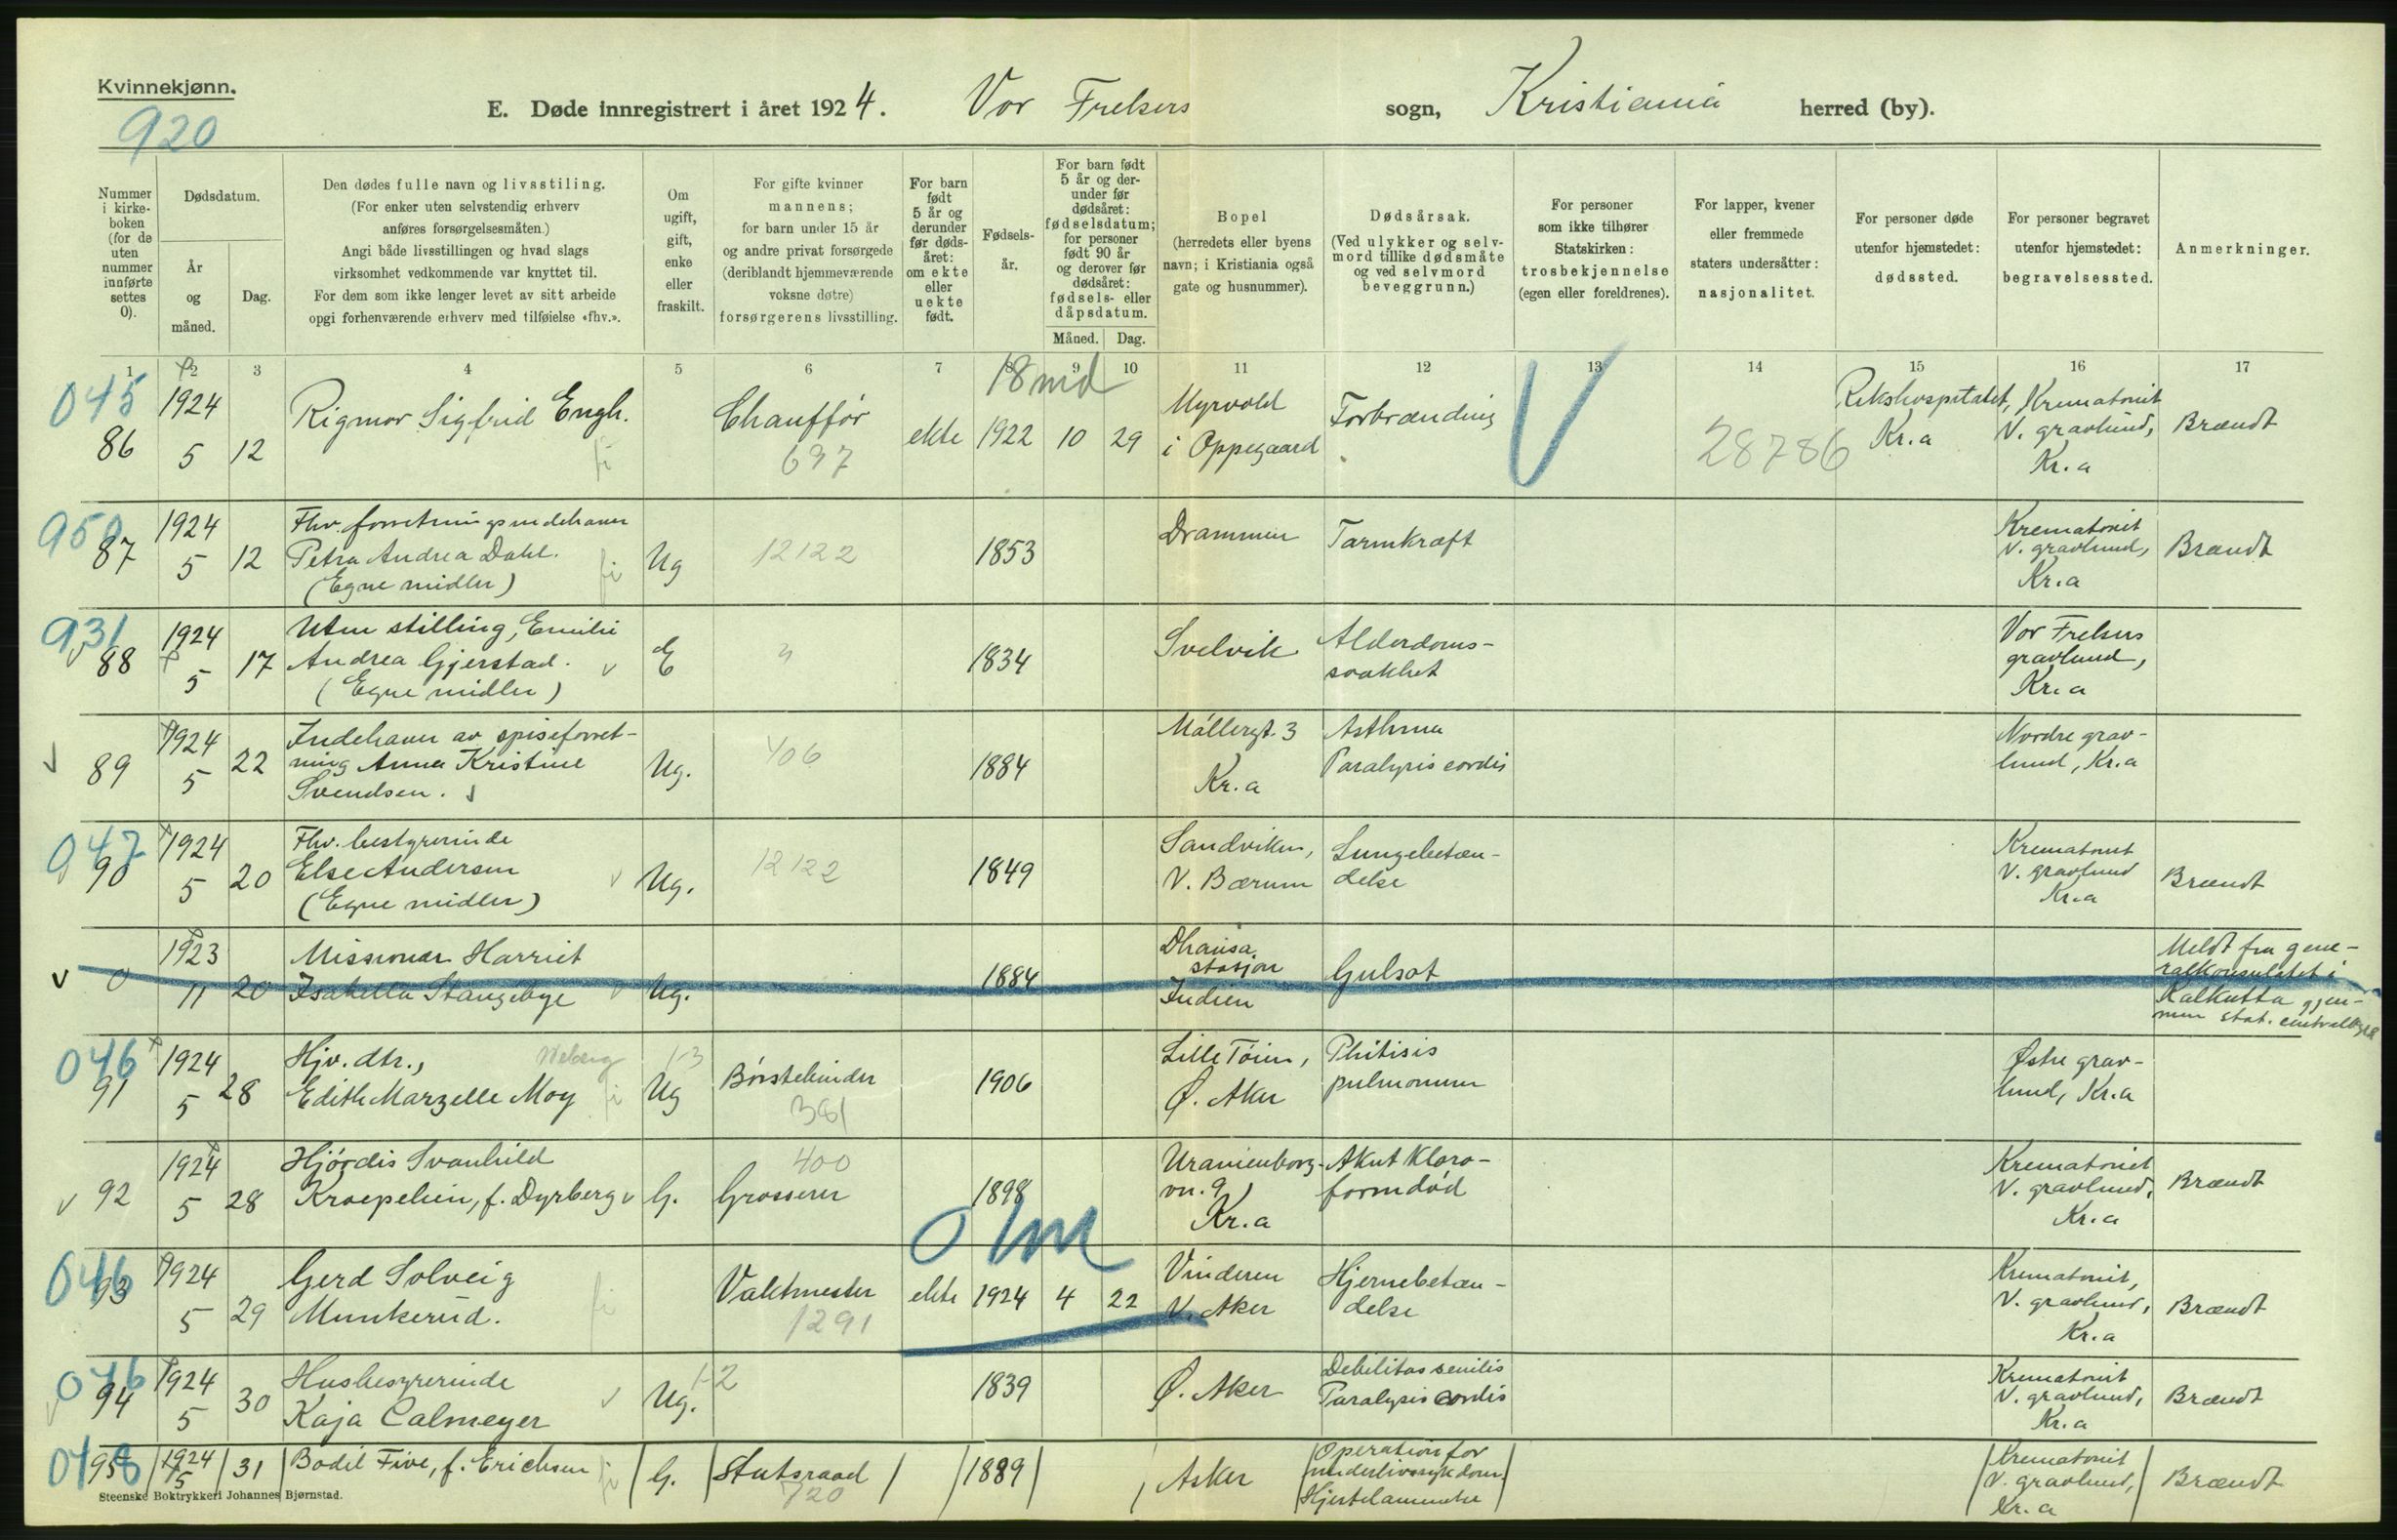 Kvinnekjønn.
920
E. Døde innregistrert i året 1924. Vor Frelsers sogn, Kristiania herred (by).
Nummer i kirke-boken (for de uten nummer innførte settes 0).
Dødsdatum.
År og måned.
Dag.
Den dødes fulle navn og livsstiling.
(For enker uten selvstendig erhverv
anføres forsørgelsesmåten.)
Angi både livsstillingen og hvad slags
virksomhet vedkommende var knyttet til.
For dem som ikke lenger levet av sitt arbeide
opgi forhenværende erhverv med tilføielse «fhv.».
Om ugift, gift, enke eller fraskilt.
For gifte kvinner
mannens;
for barn under 15 år
og andre privat forsørgede
(deriblandt hjemmeværende
voksne døtre)
forsørgerens livsstilling.
For barn født 5 år og derunder før døds-året: om ekte eller uekte født.
Fødsels-år.
For barn født 5 år og der-under før dødsåret: fødselsdatum; for personer født 90 år og derover før dødsåret: fødsels- eller dåpsdatum.
Måned. Dag.
Bopel
(herredets eller byens
navn; i Kristiania også
gate og husnummer).
Dødsårsak.
(Ved ulykker og selv-
mord tillike dødsmåte
og ved selvmord
beveggrunn.)
For personer
som ikke tilhører
Statskirken:
trosbekjennelse
(egen eller foreldrenes).
For lapper, kvener
eller fremmede
staters undersåtter:
nasjonalitet.
For personer døde
utenfor hjemstedet:
dødssted.
For personer begravet
utenfor hjemstedet:
begravelsessted.
Anmerkninger.
1 2 3 4 5 6 7 8 9 10 11 12 13 14 15 16 17
045 86 1924 5 12 Rigmor Sigfrid Engh. fi Chauffør 697 ekte 18 md 1922 10 29 Myrvold i Oppegaard Forbrænding V 28786 Rikshospitalet, Kr.a Krematoriet V. gravlund, Kr.a Brændt
950 87 1924 5 12 Fhv. forretningsindehaver
Petra Andrea Dahl.
(Egne midler) fi Ug 12122 1853 Drammen Tarmkræft Krematoriet V. gravlund, Kr.a Brændt
931 88 1924 5 17 Uten stilling, Emilie
Andrea Gjerstad.
(Egne midler) E 1834 Svelvik Alderdoms-
svakhet Vor Frelsers gravlund, Kr.a
89 1924 5 22 Indehaver av spiseforret-
ning Anna Kristine
Svendsen. Ug. 406 1884 Møllergt. 3 Kr.a Asthma
Paralysis cordis Nordre grav-
lund, Kr.a
047 90 1924 5 20 Fhv. bestyrerinde
Else Andersen
(Egne midler) Ug. 12122 1849 Sandviken, V. Bærum Lungebetæn-
delse Krematoriet V. gravlund Kr.a Brændt
0 1923 11 20 Missionær Harriet
Isabella Stangebye Ug. 1884 Dhausa stasjon Indien Gulsot Meldt fra gene-
ralkonsulatet i
Kalkutta gjen-
nem stat. centralbyrå
046 91 1924 5 28 Hjv. dtr., Weberg
Edith Marzelle Moy fi 1-3 Ug Børstebinder 381 1906 Lille Tøien, Ø. Aker Phitisis
pulmonum Østre grav-
lund, Kr.a
92 1924 5 28 Hjørdis Svanhild
Kroepelien, f. Dyrberg G. 400 Grosserer 1898 Uranienborg-
vn. 9, Kr.a Akut kloro-
formdød Krematoriet V. gravlund, Kr.a Brændt
046 93 1924 5 29 Gerd Solveig
Munkerud. fi Vaktmester 1291 ekte 0 1m 1924 4 22 Vinderen V. Aker Hjernebetæn-
delse Krematoriet, V. gravlund, Kr.a Brændt
046 94 1924 5 30 Husbestyrerinde
Kaja Calmeyer Ug. 1-2 1839 Ø. Aker Debilitas senilis
Paralysis cordis Krematoriet V. gravlund, Kr.a Brændt
048 95 1924 5 31 Bodil Five, f. Erichsen fi G. Statsraad 720 1889 Asker Operation for
underlivssykdom,
Hjertelammelse Krematoriet V. gravlund, Kr.a Brændt
Steenske Boktrykkeri Johannes Bjørnstad.